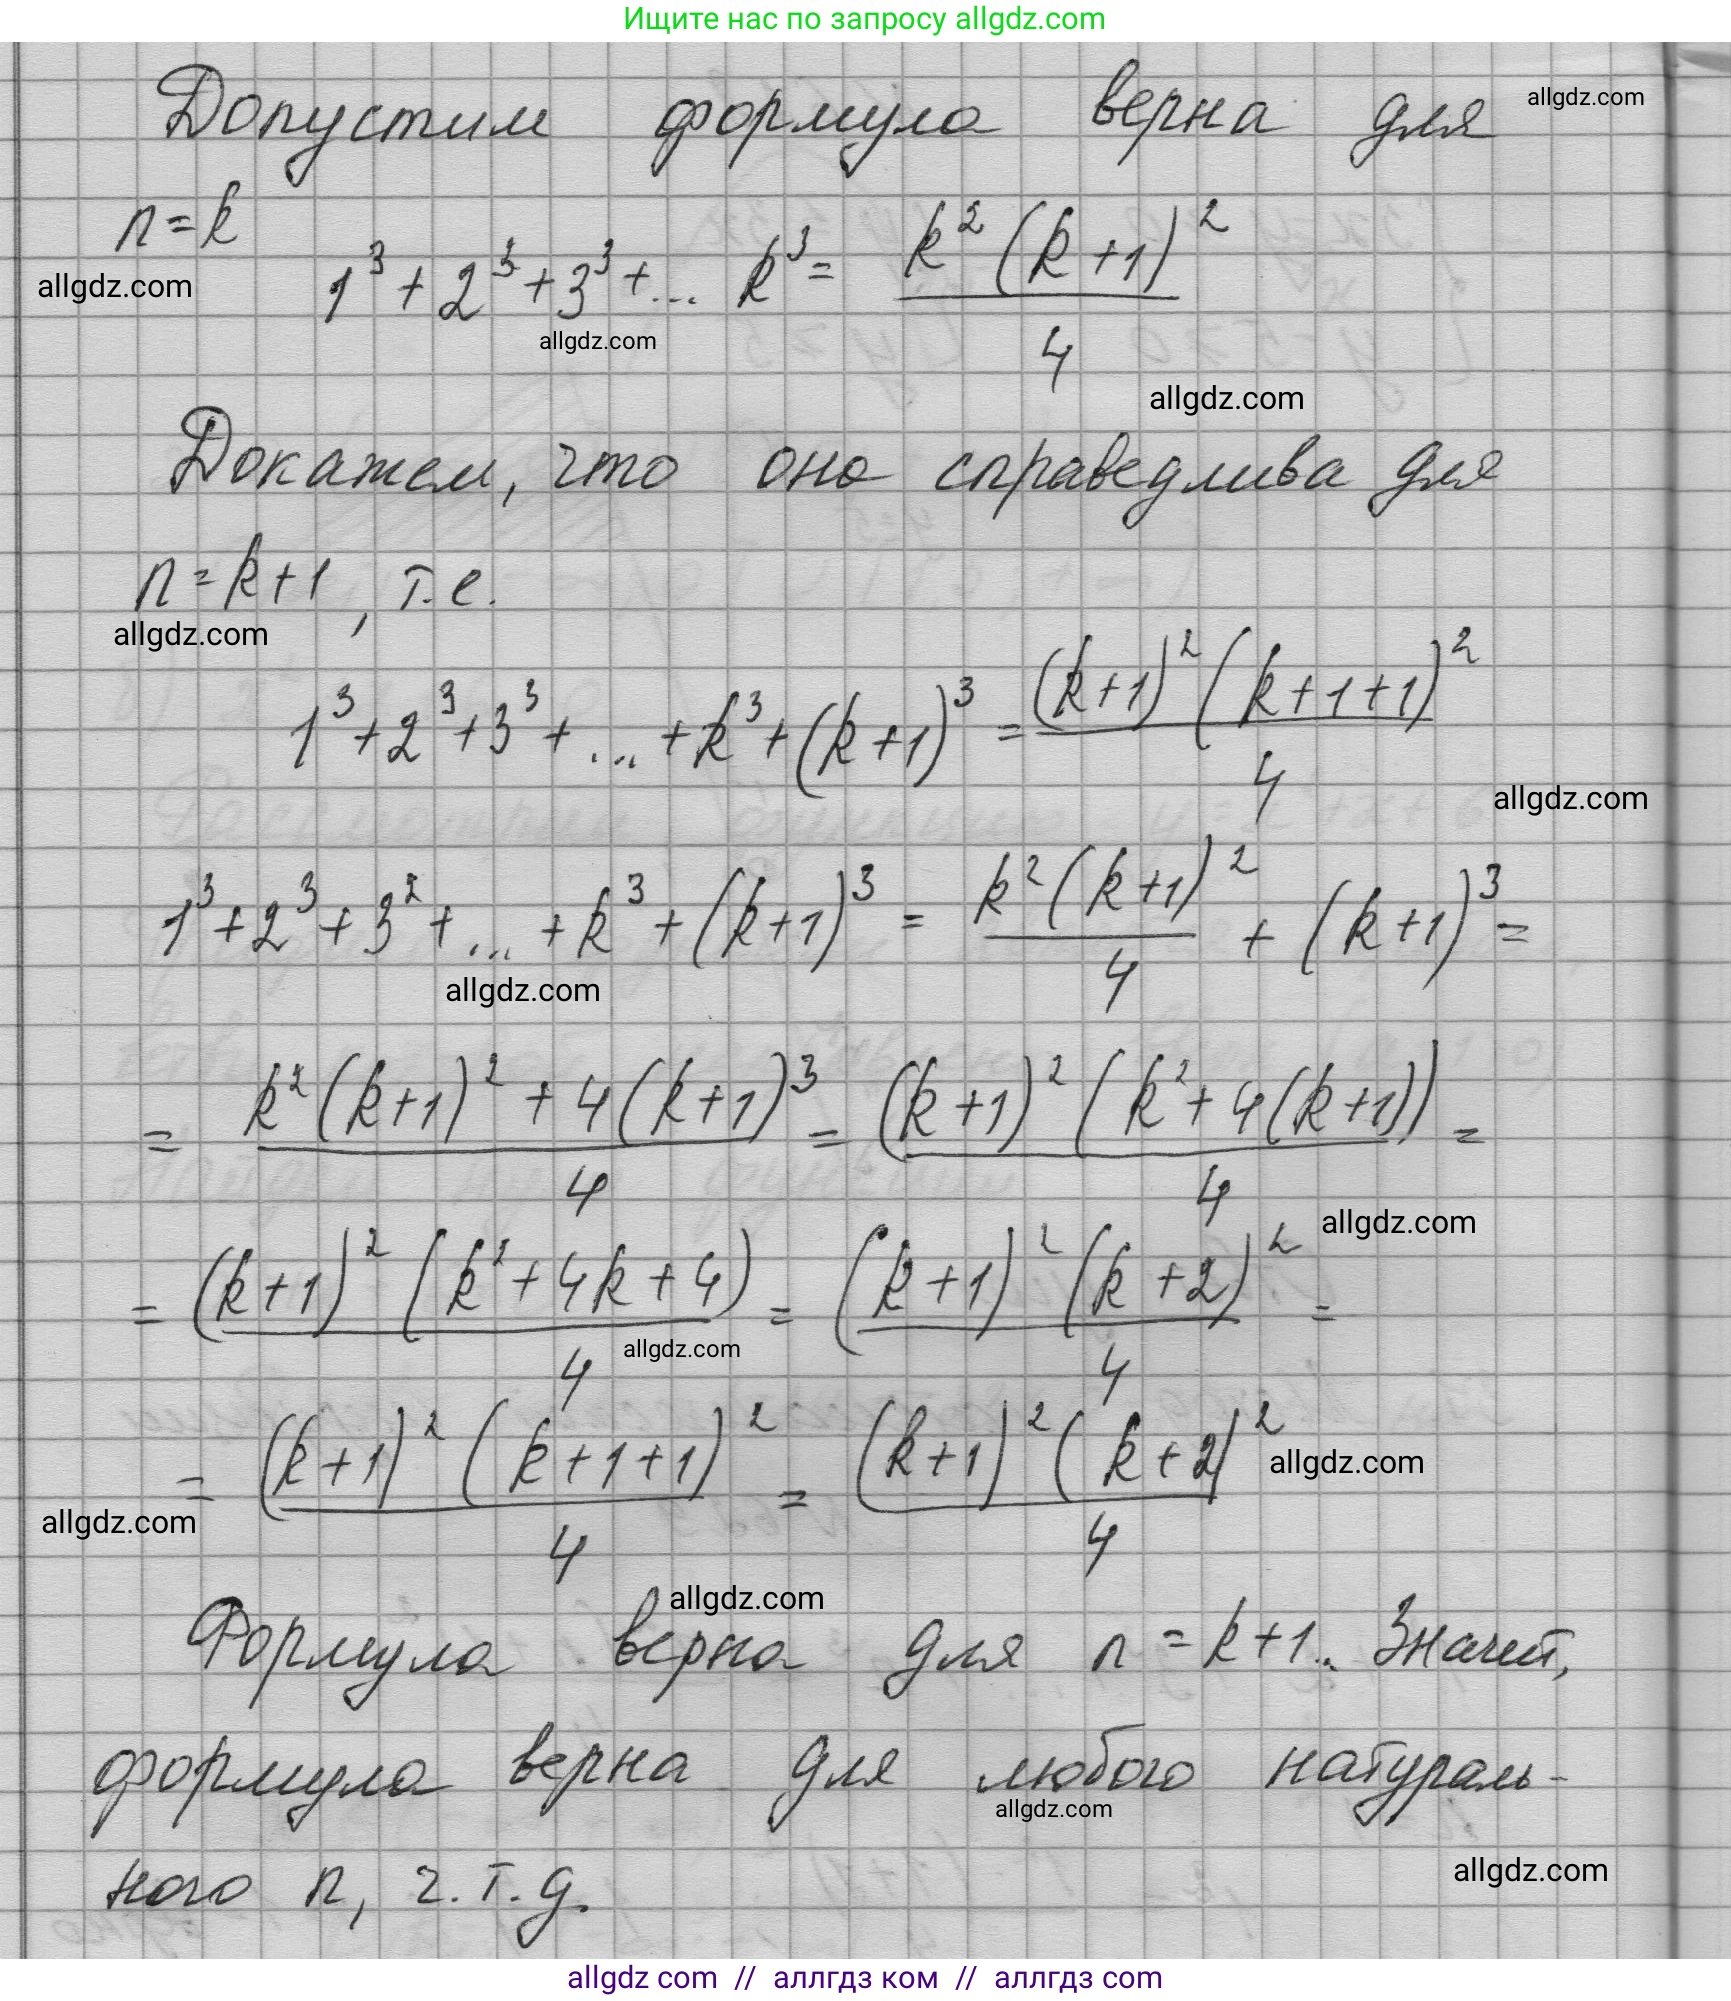 Ищите нас по запросу allgdz.com
Допустим формула верна для
allgdz.com
n=k
1³+2³+3³+... k³= k²(k+1)²/4
allgdz.com
allgdz.com
allgdz.com
Докажем, что она справедлива для
n=k+1, т.е.
allgdz.com
1³+2³+3³+...+k³+(k+1)³=(k+1)²(k+1+1)²/4
allgdz.com
1³+2³+3²+...+k³+(k+1)³= k²(k+1)²/4 +(k+1)³=
allgdz.com
= k²(k+1)²+4(k+1)³/4 = (k+1)²(k²+4(k+1))/4 =
allgdz.com
= (k+1)²(k²+4k+4)/4 = (k+1)²(k+2)²/4 =
allgdz.com
= (k+1)²(k+1+1)²/4 = (k+1)²(k+2)²/4
allgdz.com
allgdz.com
allgdz.com
Формула верна для n=k+1.. Значит,
формула верна для любого натураль-
allgdz.com
ного n, ч.т.д.
allgdz.com
allgdz com // аллгдз ком // аллгдз com